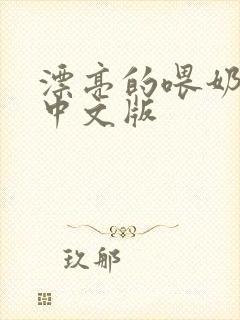 漂亮的喂奶
中文版
玖郍